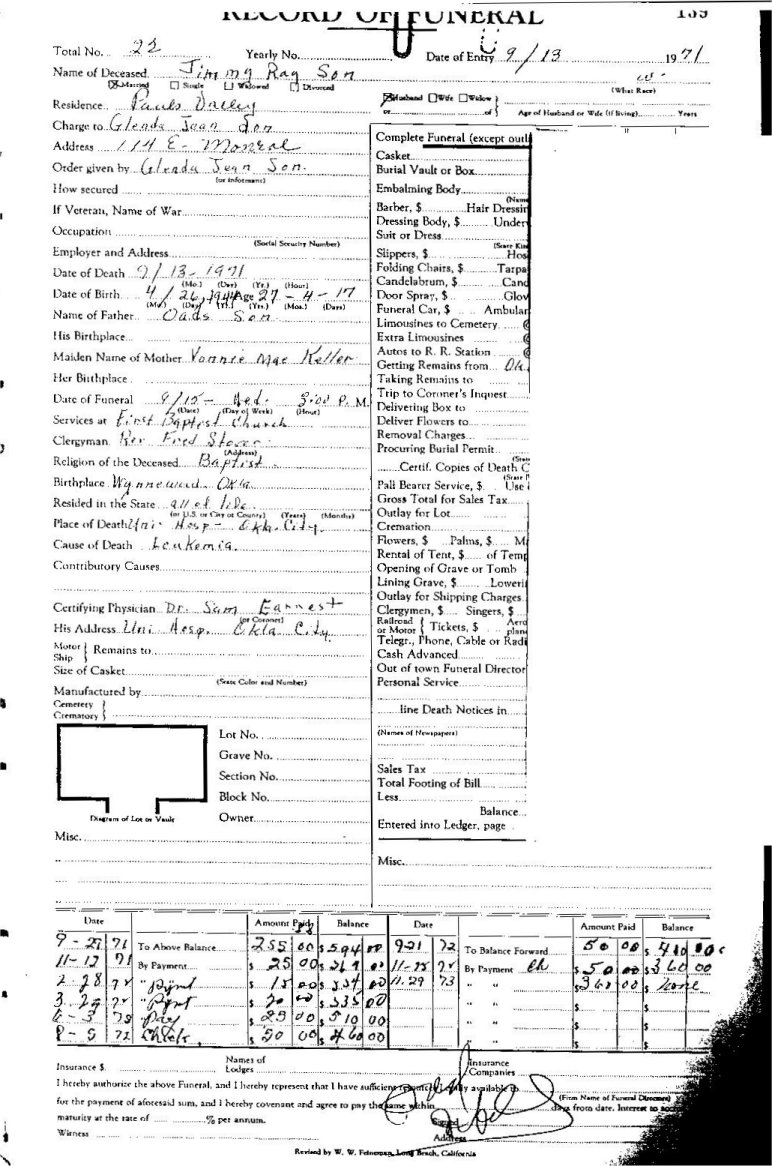 RECORD OF FUNERAL
139
Total No. 22 Yearly No. Date of Entry 9/13 1971
Name of Deceased Jimmy Ray Son W.
Married Single Widowed Divorced (What Race)
Residence Pauls Valley Husband Wife Widow
or of Age of Husband or Wife (if living) Years
Charge to Glenda Jean Son
Address 114 E-
Order given by Glenda Jean Son.
(or informant)
How secured
If Veteran, Name of War
Occupation
(Social Security Number)
Employer and Address
Date of Death 9/13-1971
(Mo.) (Day) (Yr.) (Hour)
Date of Birth 4/26, 1944 Age 27-4-17
(Mo.) (Day) (Yr.) (Yrs.) (Mos.) (Days)
Name of Father Son
His Birthplace
Maiden Name of Mother Vonnie Mae Keller
Her Birthplace
Date of Funeral 9/15- Wed. P. M.
(Date) (Day of Week) (Hour)
Services at First Baptist Church
Clergyman Rev Fred
(Address)
Religion of the Deceased Baptist
Birthplace Wynnewood Okla.
Resided in the State all of life
(or U.S. or City or County) (Years) (Months)
Place of Death Uni- Hosp- Okla. City.
Cause of Death Leukemia
Contributory Causes
Certifying Physician Dr. Sam Earnest
(or Coroner)
His Address Uni Hosp. Okla City
Motor Ship Remains to
Size of Casket
(State Color and Number)
Manufactured by
Cemetery
Crematory
Lot No.
Grave No.
Section No.
Block No.
Diagram of Lot or Vault Owner
Misc.
Complete Funeral (except outl
Casket
Burial Vault or Box
Embalming Body
(Name
Barber, $ Hair Dressin
Dressing Body, $ Under
Suit or Dress
(State Kin
Slippers, $ Hos
Folding Chairs, $ Tarpa
Candelabrum, $ Cand
Door Spray, $ Glov
Funeral Car, $ Ambular
Limousines to Cemetery @
Extra Limousines @
Autos to R. R. Station @
Getting Remains from
Taking Remains to
Trip to Coroner's Inquest
Delivering Box to
Deliver Flowers to
Removal Charges
Procuring Burial Permit
(State
Certif. Copies of Death C
(State
Pall Bearer Service, $ Use
Gross Total for Sales Tax
Outlay for Lot
Cremation
Flowers, $ Palms, $ M
Rental of Tent, $ of Temp
Opening of Grave or Tomb
Lining Grave, $ Loweri
Outlay for Shipping Charges
Clergymen, $ Singers, $
Railroad or Motor Tickets, $ Aero plane
Telegr., Phone, Cable or Radi
Cash Advanced
Out of town Funeral Director
Personal Service
line Death Notices in
(Names of Newspapers)
Sales Tax
Total Footing of Bill
Less
Balance
Entered into Ledger, page
Misc.
Date Amount Paid Balance Date Amount Paid Balance
71 To Above Balance 255 00 $ 594 00 9-21 72 To Balance Forward 50 00 $ 410 00
71 By Payment $ 25 00 $ 11- 72 By Payment Ch $ 50 00 $ 360 00
72 " Pymt $ 15 00 $ 11.29 73 " " $ 360 00 $ None
72 " Pymt $ 20 00 $ 535 00 " " $ $
" Pay $ 25 00 $ 510 00 " " $ $
72 " Check $ 50 00 $ 460 00 " " $ $
Insurance $ Names of Lodges Insurance Companies
I hereby authorize the above Funeral, and I hereby represent that I have sufficient available to
(Firm Name of Funeral Directors)
for the payment of aforesaid sum, and I hereby covenant and agree to pay the same within days from date. Interest to
maturity at the rate of % per annum.
Signed
Witness Address
Revised by W. W. Feineman, Long Beach, California